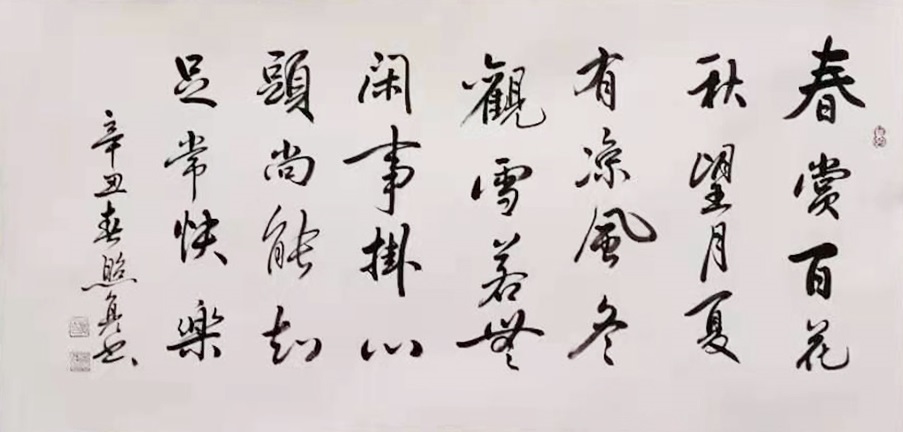 春賞百花
秋望月夏
有凉風冬
觀雪若無
闲事掛心
頭尚能知
足常快樂
辛丑春照兵书